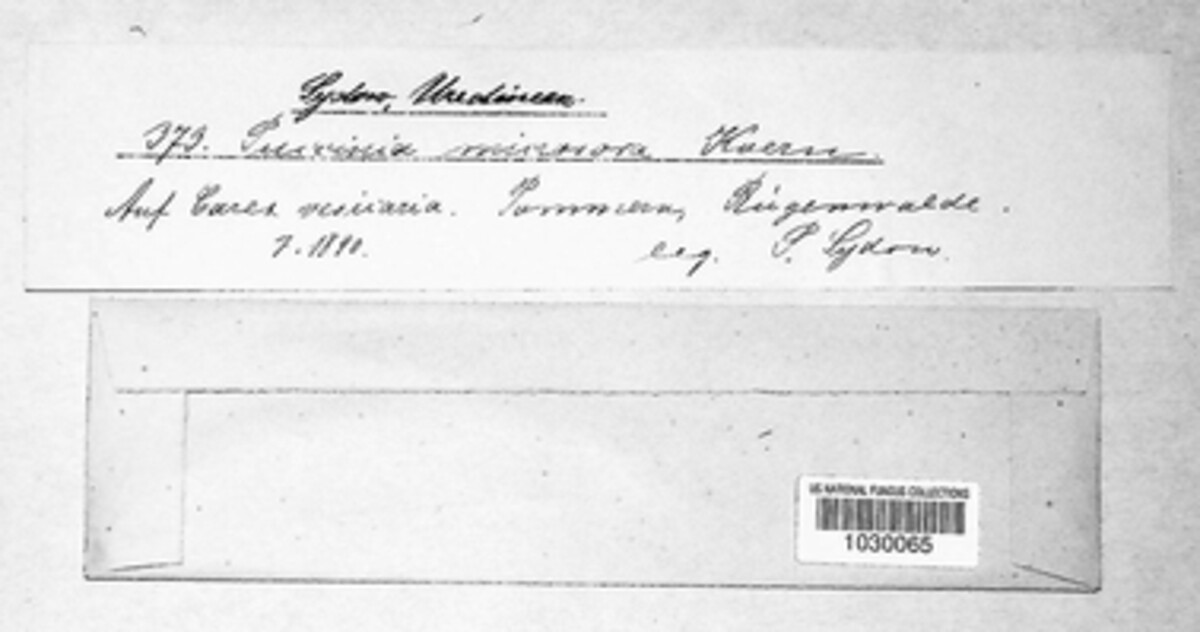 Sydow, Uredineen.
373. Puccinia microsora Koern.
Auf Carex vesicaria. Pommern, Rügenwalde.
7. 1890.
leg. P. Sydow.
US NATIONAL FUNGUS COLLECTIONS
1030065